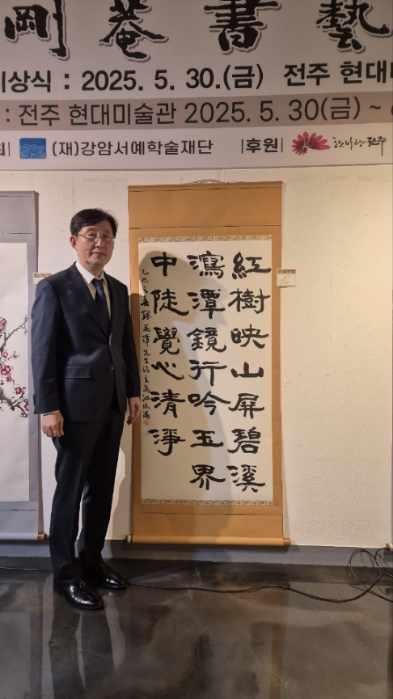 剛菴書藝
이상식 : 2025. 5. 30.(금) 전주 현대
: 전주 현대미술관 2025. 5. 30(금) ~
(재)강암서예학술재단 |후원|
紅樹映山屛碧溪
瀉潭鏡行吟玉界
中陡覺心淸淨